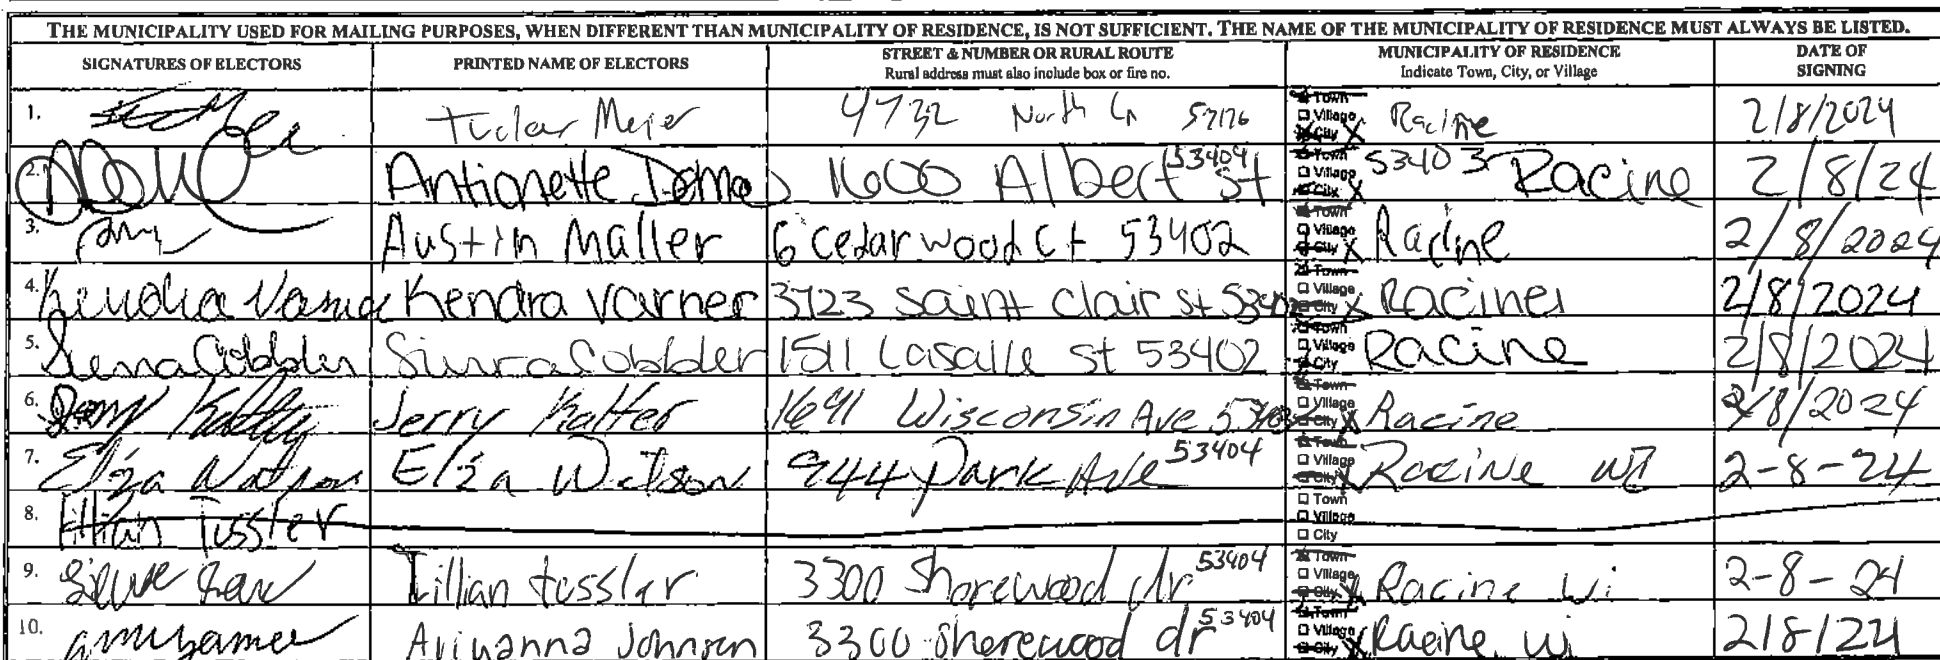 THE MUNICIPALITY USED FOR MAILING PURPOSES, WHEN DIFFERENT THAN MUNICIPALITY OF RESIDENCE, IS NOT SUFFICIENT. THE NAME OF THE MUNICIPALITY OF RESIDENCE MUST ALWAYS BE LISTED.
SIGNATURES OF ELECTORS PRINTED NAME OF ELECTORS STREET & NUMBER OR RURAL ROUTE Rural address must also include box or fire no. MUNICIPALITY OF RESIDENCE Indicate Town, City, or Village DATE OF SIGNING
1. Meier 4732 North Ln Town Village City X Racine 2/8/2024
2. Antionette 1600 Albert St 53404 Town Village City X 53403 Racine 2/8/24
3. Austin Maller 6 Cedarwood Ct 53402 Town Village City X Racine 2/8/2024
4. Kendra Varner 3723 Saint Clair St 53402 Town Village City X Racine 2/8/2024
5. Sierra Cobbler 1511 Lasalle St 53402 Town Village City Racine 2/8/2024
6. Jerry 1691 Wisconsin Ave Town Village City X Racine 2/8/2024
7. Eliza Watson Eliza Watson 944 Park Ave 53404 Town Village City X Racine WI 2-8-24
8. Lillian Tussler Town Village City
9. Lillian tussler 3300 Shorewood dr 53404 Town Village City X Racine Wi 2-8-24
10. Ariyanna Johnson 3300 Shorewood dr 53404 Town Village City X Racine Wi 2/8/24